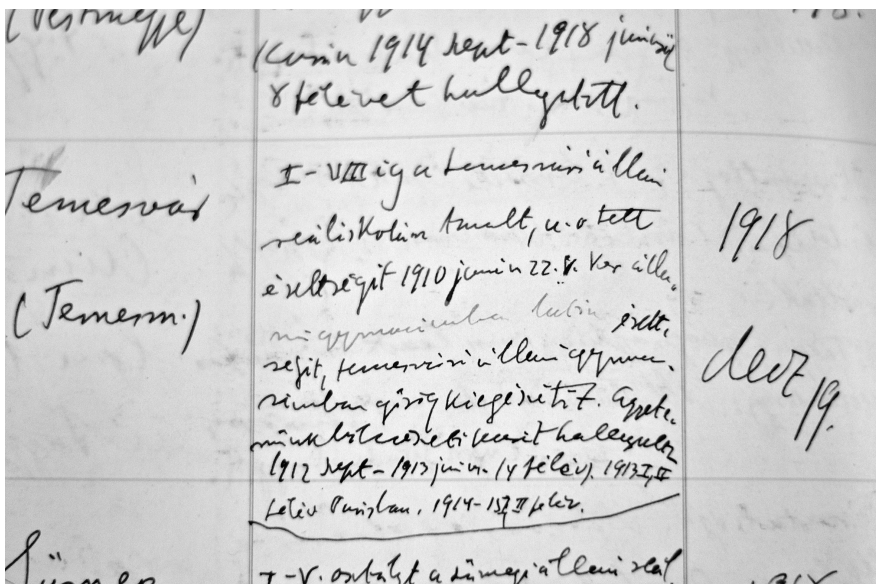 (Pestmegye)
karán 1914 sept - 1918 juniusig
8 félévet hallgatott.
Temesvár
(Temesm.)
I-VIII ig a temesvári állami
reáliskolán tanult, u.o. tett
érettségit 1910 junius 22. V. ker. álla-
mi gymnasiumban latin érett-
ségit, temesvári állami gymna-
siumban görög kiegészítőt. Egyete-
münk bölcsészeti karát hallgatta
1912 sept - 1913 jun. (4 félév). 1913 I, II
félév Párisban, 1914-15 I, II félév.
1918
dec 19.
I-V. osztályt a sümegi állami reál